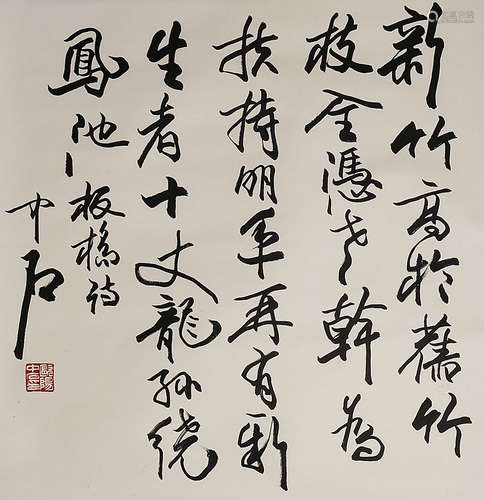 新竹高於舊竹
枝全憑老幹為
扶持明年再有新
生者十丈龍孫繞
鳳池板橋詩
中石